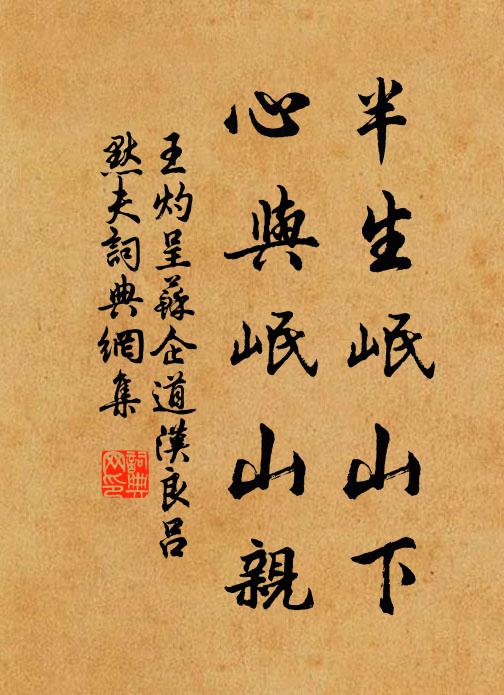 半生岷山下
心與岷山親
王灼呈蘇企道漢良吕
黙夫詞典網集
詞典网印